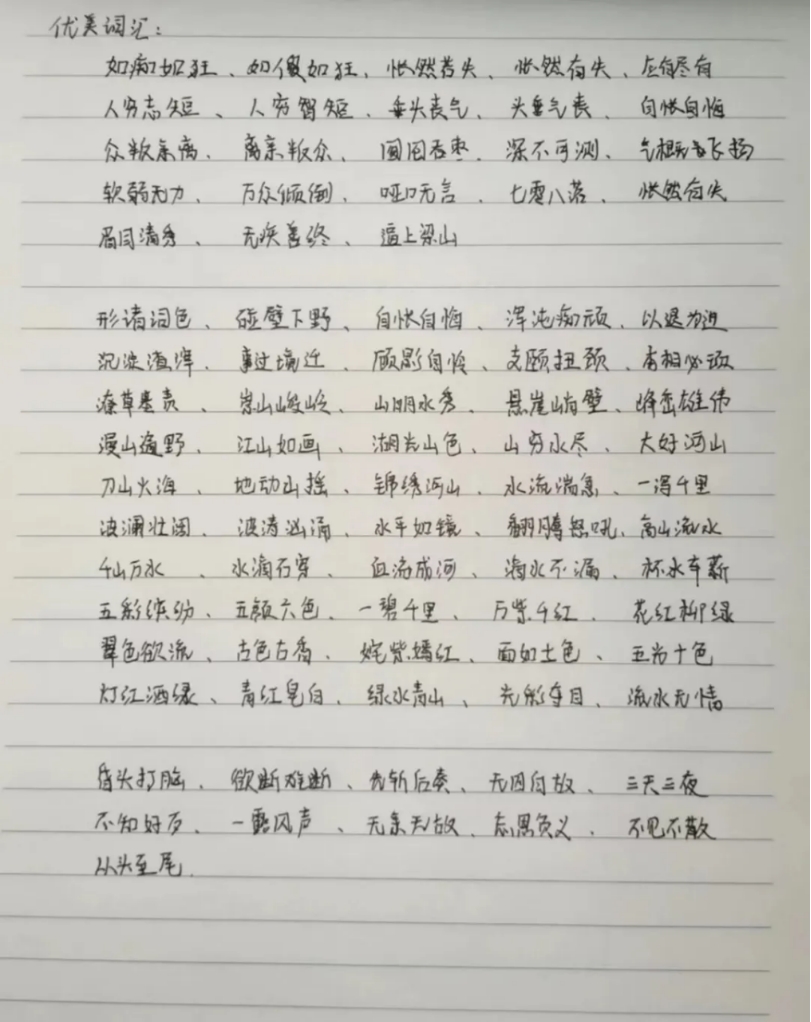 优美词汇：
如痴如狂、如傻如狂、怅然若失、怅然有失、应有尽有
人穷志短、人穷智短、垂头丧气、头垂气丧、自怅自悔
众叛亲离、离亲叛众、囫囵吞枣、深不可测、气相飞扬
软弱无力、万众倾倒、哑口无言、七零八落、怅然有失
眉目清秀、无疾善终、逼上梁山
形诸词色、碰壁下野、自怅自悔、浑沌痴顽、以退为进
沉淀渣滓、事过境迁、顾影自怜、支颐扭颈、有相必现
崇山峻岭、山明水秀、悬崖峭壁、峰峦雄伟
漫山遍野、江山如画、湖光山色、山穷水尽、大好河山
刀山火海、地动山摇、锦绣河山、水流湍急、一泻千里
波澜壮阔、波涛汹涌、水平如镜、翻腾怒吼、高山流水
千山万水、水滴石穿、血流成河、滴水不漏、杯水车薪
五彩缤纷、五颜六色、一碧千里、万紫千红、花红柳绿
翠色欲流、古色古香、姹紫嫣红、面如土色、五光十色
灯红酒绿、青红皂白、绿水青山、光彩夺目、流水无情
昏头打脑、欲断难断、先斩后奏、无因自故、三天三夜
不知好歹、一露风声、无亲无故、忘恩负义、不见不散
从头至尾.